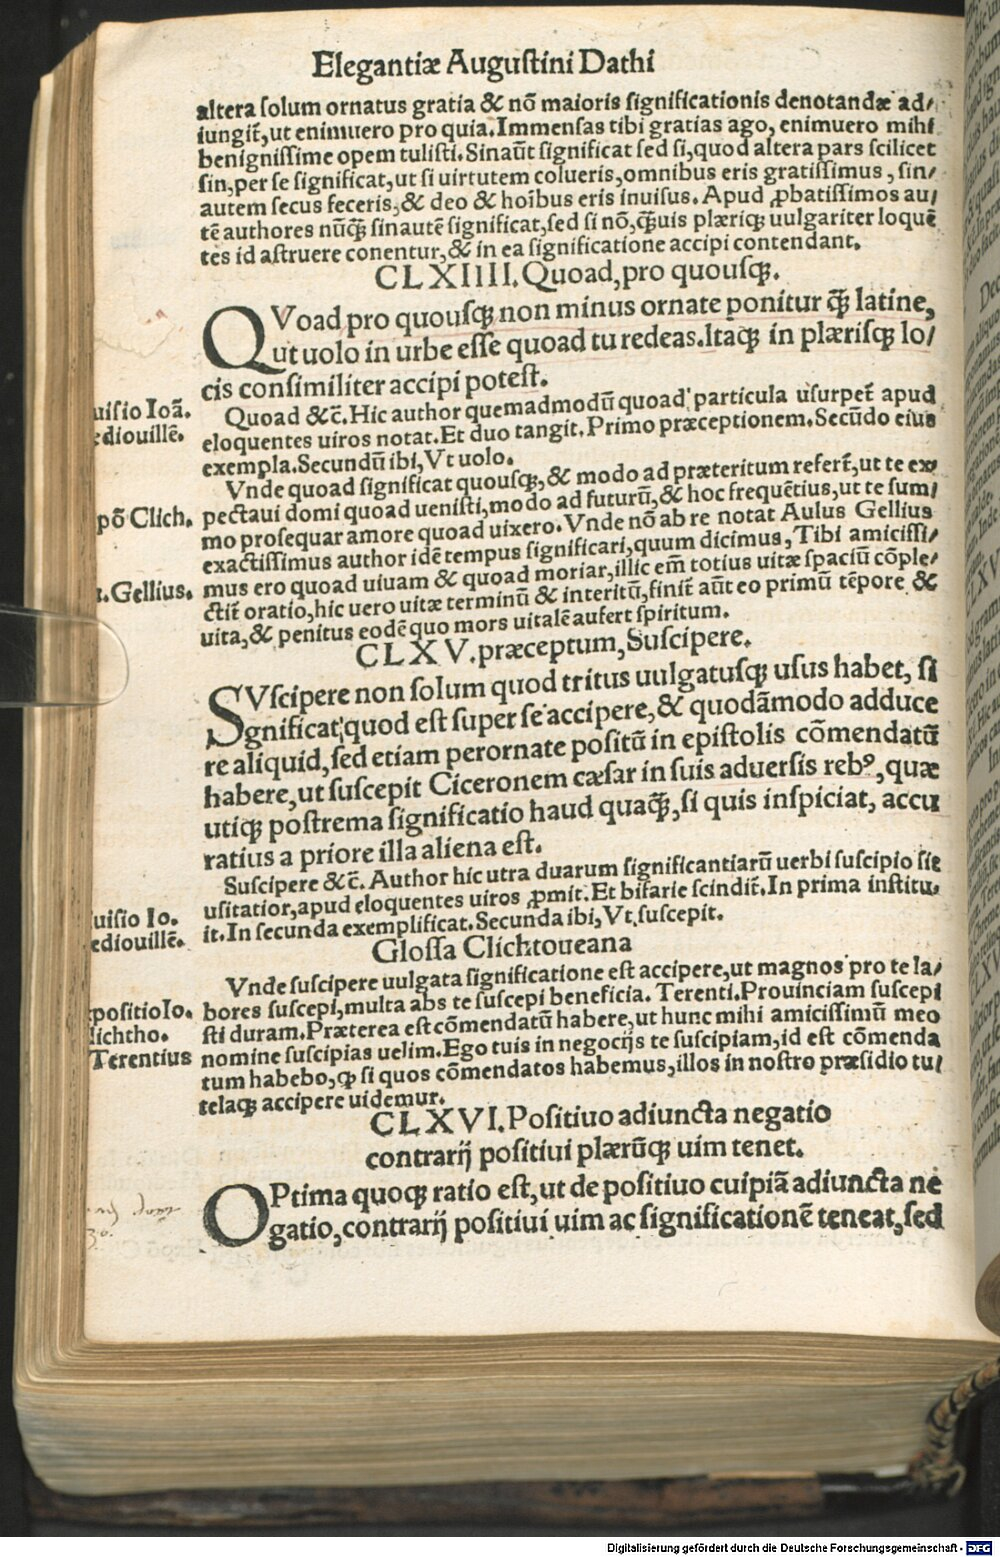 Elegantiæ Augustini Dathi
altera solum ornatus gratia & nō maioris significationis denotandæ ad/
iungit̃, ut enimuero pro quia. Immensas tibi gratias ago, enimuero mihi
benignissime opem tulisti. Sinaūt significat sed si, quod altera pars scilicet
sin, per se significat, ut si uirtutem colueris, omnibus eris gratissimus, sin/
autem secus feceris, & deo & hoībus eris inuisus. Apud ꝓbatissimos au/
tē authores nūꝗ̃ sinautē significat, sed si nō, ꝗ̃uis plæriqꝫ uulgariter loquē
tes id astruere conentur, & in ea significatione accipi contendant.
CLXIIII. Quoad, pro quousqꝫ.
QVoad pro quousqꝫ non minus ornate ponitur ꝗ̃ latine,
ut uolo in urbe esse quoad tu redeas. Itaqꝫ in plærisqꝫ lo/
cis consimiliter accipi potest.
uisio Ioā.
ediouillē.
Quoad &c̄. Hic author quemadmodū quoad particula usurpet̃ apud
eloquentes uiros notat. Et duo tangit. Primo præceptionem. Secūdo eius
exempla. Secundū ibi, Vt uolo.
Vnde quoad significat quousqꝫ, & modo ad præteritum refert̃, ut te ex/
pō Clich.
pectaui domi quoad uenisti, modo ad futurū, & hoc frequētius, ut te sum/
mo prosequar amore quoad uixero. Vnde nō ab re notat Aulus Gellius
exactissimus author idē tempus significari, quum dicimus, Tibi amicissi/
.Gellius.
mus ero quoad uiuam & quoad moriar, illic em̄ totius uitæ spaciū cōple/
ctit̃ oratio, hic uero uitæ terminū & interitū, finit̃ aūt eo primū tēpore &
uita, & penitus eodē quo mors uitalē aufert spiritum.
CLXV. præceptum, Suscipere.
SVscipere non solum quod tritus uulgatusqꝫ usus habet, si
gnificat, quod est super se accipere, & quodāmodo adduce
re aliquid, sed etiam perornate positū in epistolis cōmendatū
habere, ut suscepit Ciceronem cæsar in suis aduersis rebꝰ, quæ
utiqꝫ postrema significatio haud quaꝗ̃, si quis inspiciat, accu
ratius a priore illa aliena est.
Suscipere &c̄. Author hic utra duarum significantiarū uerbi suscipio sit
uisio Io.
ediouillē.
usitatior, apud eloquentes uiros ꝓmit. Et bifarie scindit̃. In prima institu/
it. In secunda exemplificat. Secunda ibi, Vt suscepit.
Glossa Clichtoueana
Vnde suscipere uulgata significatione est accipere, ut magnos pro te la/
positio Io.
lichtho.
Terentius
bores suscepi, multa abs te suscepi beneficia. Terenti. Prouinciam suscepi
sti duram. Præterea est cōmendatū habere, ut hunc mihi amicissimū meo
nomine suscipias uelim. Ego tuis in negocijs te suscipiam, id est cōmenda
tum habebo, ꝙ si quos cōmendatos habemus, illos in nostro præsidio tu/
telaqꝫ accipere uidemur.
CLXVI. Positiuo adiuncta negatio
contrarij positiui plærūqꝫ uim tenet.
OPtima quoqꝫ ratio est, ut de positiuo cuipiā adiuncta ne
gatio, contrarij positiui uim ac significationē teneat, sed
Digitalisierung gefördert durch die Deutsche Forschungsgemeinschaft - DFG